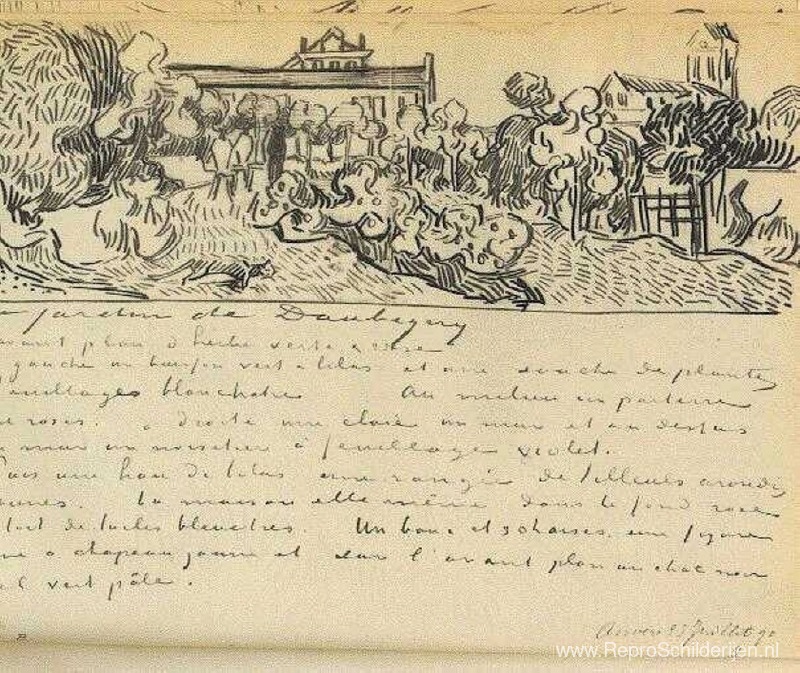 jardin de Daubigny
avant plan d'herbe verte & rose
gauche un buisson vert & lilas et une souche de plantes
feuillages blanchatres Au milieu un parterre
roses. a droite une claie un mur et au dessus
mur un noisetier à feuillage violet.
Puis une haie de lilas une rangée de tilleuls arrondis
jaunes. La maison elle même dans le fond rose
toit de tuiles bleuatres. Un banc et 3 chaises. une figure
à chapeau jaune et sur l'avant plan un chat noir
vert pâle.
Auvers 23 Juillet 90
www.ReproSchilderijen.nl